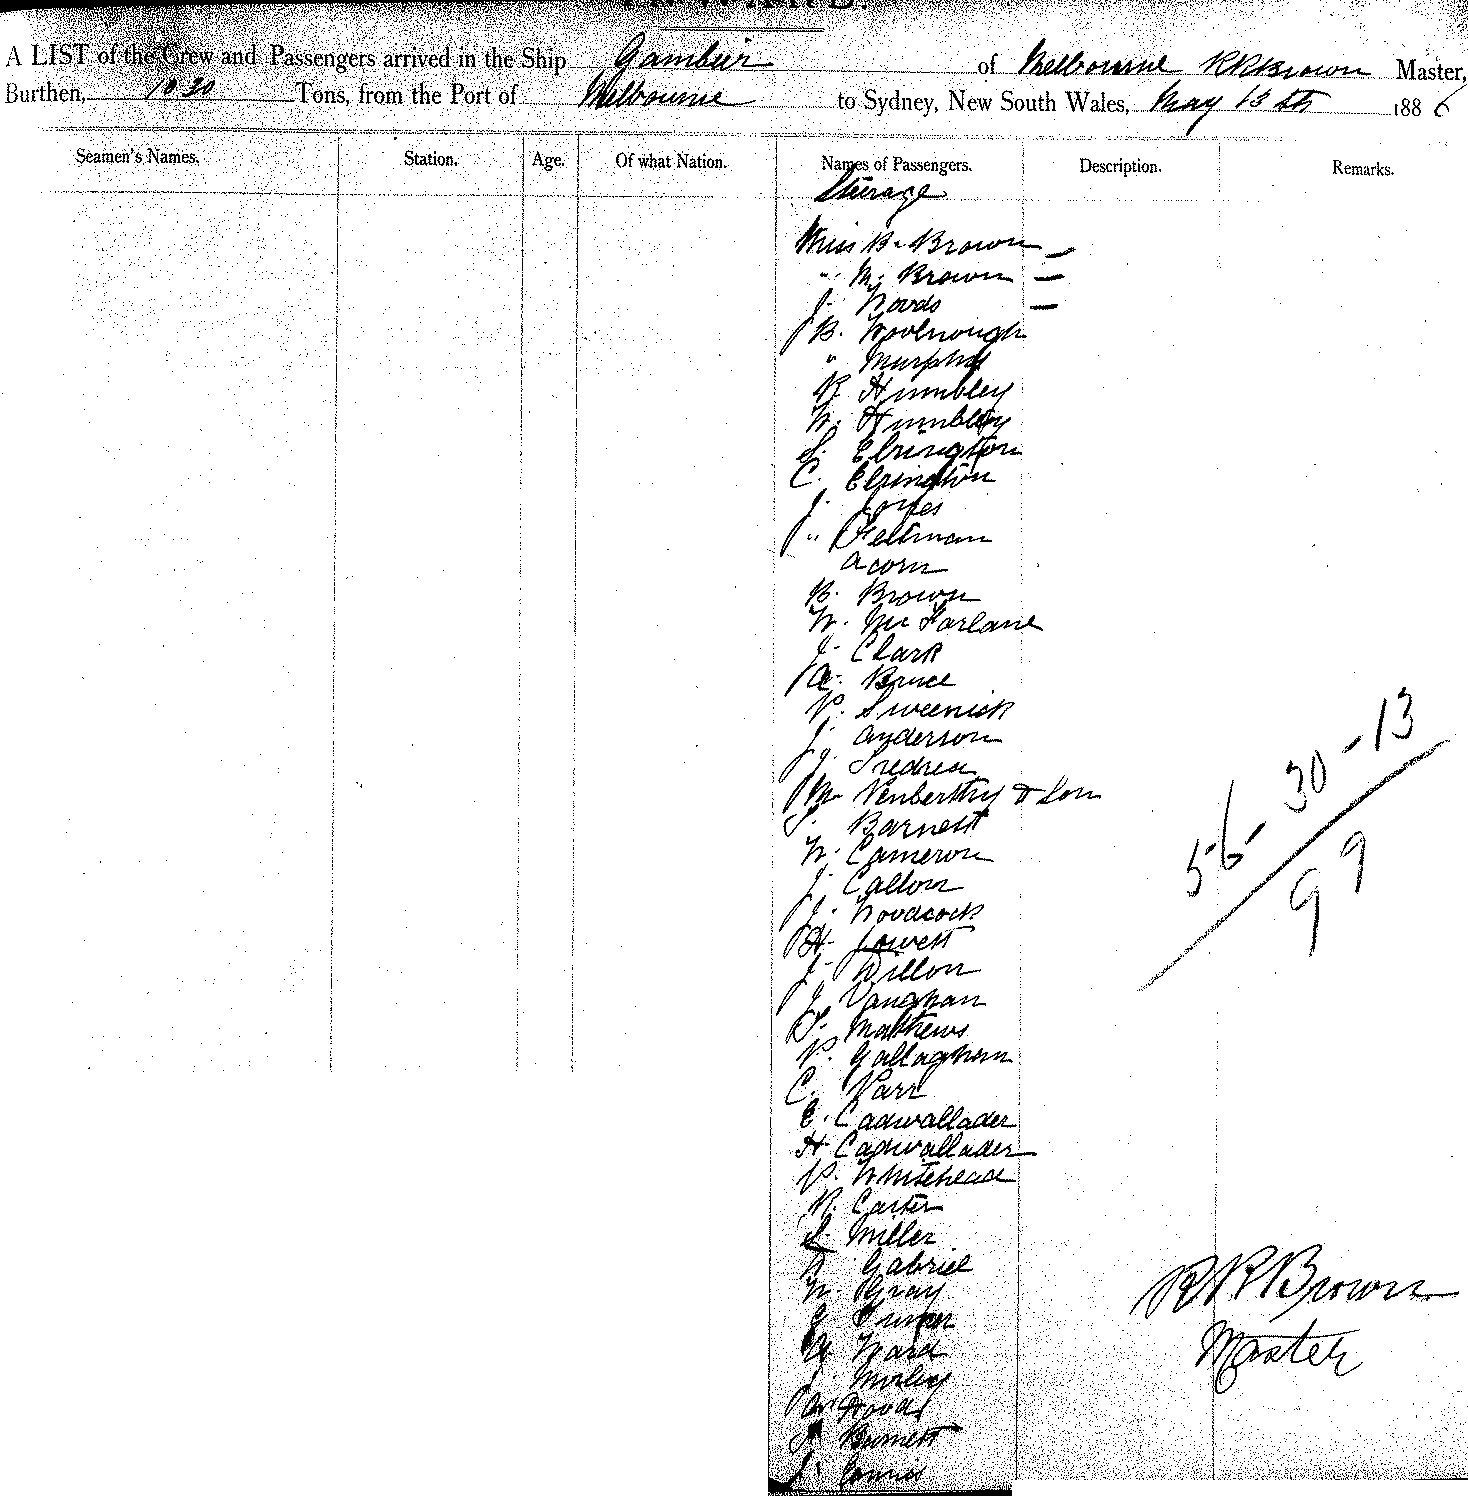 A LIST of the Crew and Passengers arrived in the Ship Gambier of Melbourne R R Brown Master,
Burthen, 1030 Tons, from the Port of Melbourne to Sydney, New South Wales, May 13th 1886
Seamen's Names. Station. Age. Of what Nation. Names of Passengers. Description. Remarks.
Steerage
Miss B. Brown —
" M. Brown —
J. Woods —
B. Woolnough
" Murphy
R. Humbley
W. Humbley
S. Elrington
C. Elrington
J. Jones
" Feltman
Acorn
B. Brown
W. McFarlane
J. Clark
A. Bruce
P. Sweenick
J. Anderson
J.
M. Penberthy & Son
J. Barnett
W. Cameron
J. Callow
J. Woodcock
H. Jowett
J. Dillon
J. Vaughan
T. Mathews
P. Gallagham
C. Parr
E. Cadwallader
H. Cadwallader
P. Whitehead
R. Carter
S. Miller
Gabriel
W. Gray
G.
G. Ward
J. Morley
Wood
J. Burnett
J.
56 - 30 - 13
99
R R Brown
Master